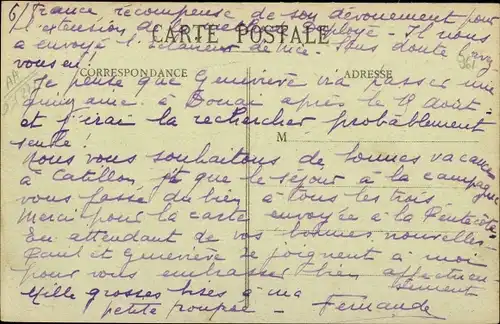 6/ France récompense de son dévouement pour
l'extension de Employé - Il nous
a envoyé l'Éclaireur de Nice - Vous doute
vous en!
CARTE POSTALE
CORRESPONDANCE
ADRESSE
M
Je pense que Geneviève ira passer une
quinzaine à Douai après le 11 Août
et j'irai la rechercher probablement
seule!
Nous vous souhaitons de bonnes vacances
à Catillon, et que le séjour à la campagne
vous fasse du bien à tous les trois
Merci pour la carte envoyée à la Pentecôte
En attendant de vos bonnes nouvelles
Paul et Geneviève se joignent à moi
pour vous embrasser bien affectueusement
Mille grosses bises à ma
petite poupée - Fernande